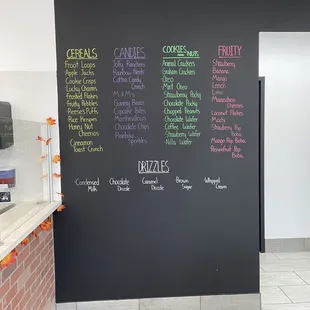 CEREALS
Froot Loops
Apple Jacks
Cookie Crisps
Lucky Charms
Frosted Flakes
Fruity Pebbles
Reeses Puffs
Rice Krispies
Honey Nut
Cheerios
Cinnamon
Toast Crunch
CANDIES
Jolly Ranchers
Rainbow Nerds
Cotton Candy
Crunch
M&M's
Gummy Bears
Cupcake Bites
Marshmallows
Chocolate Chips
Rainbow
Sprinkles
COOKIES
and NUTS
Animal Crackers
Graham Crackers
Oreo
Mint Oreo
Strawberry Pocky
Chocolate Pocky
Chopped Peanuts
Chocolate Wafer
Coffee Wafer
Strawberry Wafer
Nilla Wafer
FRUITY
Strawberry
Banana
Mango
Lemon
Lime
Maraschino
Cherries
Coconut Flakes
Mochi
Strawberry Pop
Boba
Mango Pop Boba
Passionfruit Pop
Boba
DRIZZLES
Condensed
Milk
Chocolate
Drizzle
Caramel
Drizzle
Brown
Sugar
Whipped
Cream